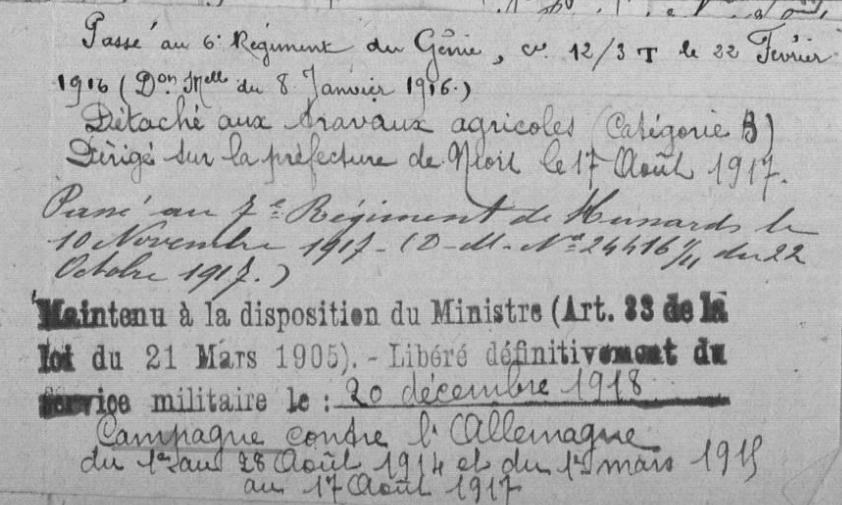 Passé au 6e Régiment du Génie, Cie 12/3 T le 22 Février
1916 (Don Melle du 8 Janvier 1916.)
Détaché aux travaux agricoles (Catégorie B)
Dirigé sur la préfecture de Niort le 17 Août 1917.
Passé au 7e Régiment de Hussards le
10 Novembre 1917 - (D-M- No 24416 1/11 du 22
Octobre 1917.)
Maintenu à la disposition du Ministre (Art. 33 de la
loi du 21 Mars 1905). - Libéré définitivement du
service militaire le : 20 décembre 1918
Campagne contre l'Allemagne
du 1er au 28 Août 1914 et du 1er mars 1915
au 17 Août 1917